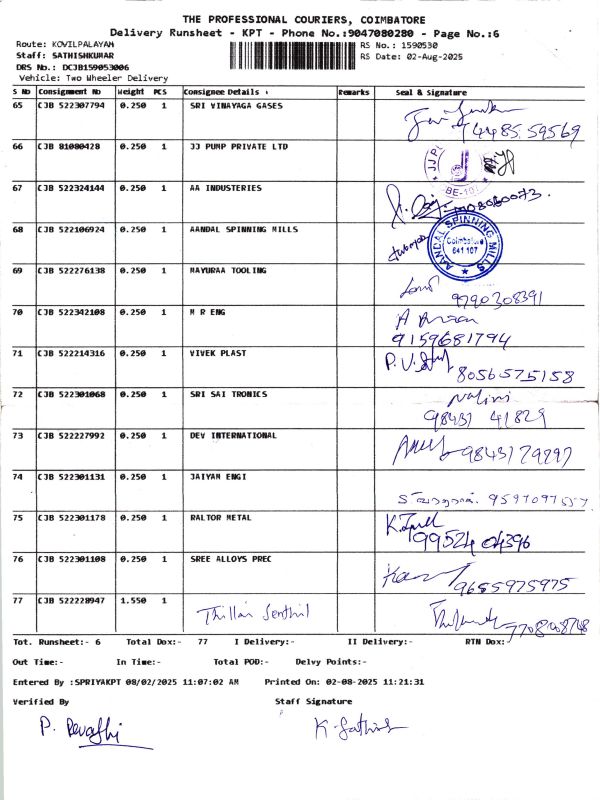 THE PROFESSIONAL COURIERS, COIMBATORE
Delivery Runsheet - KPT - Phone No.:9047080280 - Page No.:6
Route: KOVILPALAYAM RS No.: 1590530
Staff: SATHISHKUMAR RS Date: 02-Aug-2025
DRS No.: DCJB159053006
Vehicle: Two Wheeler Delivery
S No Consignment No Weight PCS Consignee Details Remarks Seal & Signature
65 CJB 522307794 0.250 1 SRI VINAYAGA GASES
66 CJB 81080428 0.250 1 JJ PUMP PRIVATE LTD
67 CJB 522324144 0.250 1 AA INDUSTERIES
68 CJB 522106924 0.250 1 AANDAL SPINNING MILLS AANDAL SPINNING MILLS Coimbatore 641 107
69 CJB 522276138 0.250 1 MAYURAA TOOLING 9790308391
70 CJB 522342108 0.250 1 M R ENG 9159681794
71 CJB 522214316 0.250 1 VIVEK PLAST 8056575158
72 CJB 522301068 0.250 1 SRI SAI TRONICS Nalini 98431 41829
73 CJB 522227992 0.250 1 DEV INTERNATIONAL
74 CJB 522301131 0.250 1 JAIYAM ENGI
75 CJB 522301178 0.250 1 RALTOR METAL 99524 04396
76 CJB 522301108 0.250 1 SREE ALLOYS PREC 9655975975
77 CJB 522228947 1.550 1 Thillai Senthil 7708008748
Tot. Runsheet:- 6 Total Dox:- 77 I Delivery:- II Delivery:- RTN Dox:-
Out Time:- In Time:- Total POD:- Delvy Points:-
Entered By :SPRIYAKPT 08/02/2025 11:07:02 AM Printed On: 02-08-2025 11:21:31
Verified By Staff Signature
P. Revathi K. Sathish